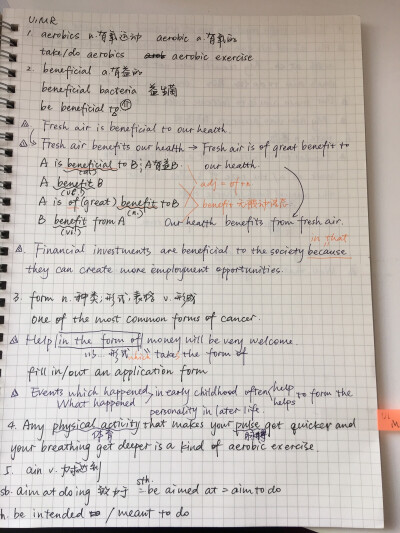 U1MR
1. aerobics n.有氧运动 aerobic a.有氧的
take/do aerobics aerobic exercise
2. beneficial a.有益的
beneficial bacteria 益生菌
be beneficial to
△ Fresh air is beneficial to our health
△ Fresh air benefits our health → Fresh air is of great benefit to
A is beneficial to B; A有益B our health
(adj.)
A benefit B adj = of + n
(vt.)
A is of (great) benefit to B benefit
(n.)
B benefit from A Our health benefits from fresh air.
(vi.)
in that
△. Financial investments are beneficial to the society because
they can create more employment opportunities.
3. form n.种类;形式;表格 v.形成
one of the most common forms of cancer.
△ Help in the form of money will be very welcome.
以...形式 which takes the form of
fill in/out an application form
△ Events which happened in early childhood often help to form the
What happened helps
personality in later life.
4. Any physical activity that makes your pulse get quicker and
体育 脉搏
your breathing get deeper is a kind of aerobic exercise.
5. aim v.
sth.
sb. aim at doing 致力于 = be aimed at = aim to do
be intended to / meant to do